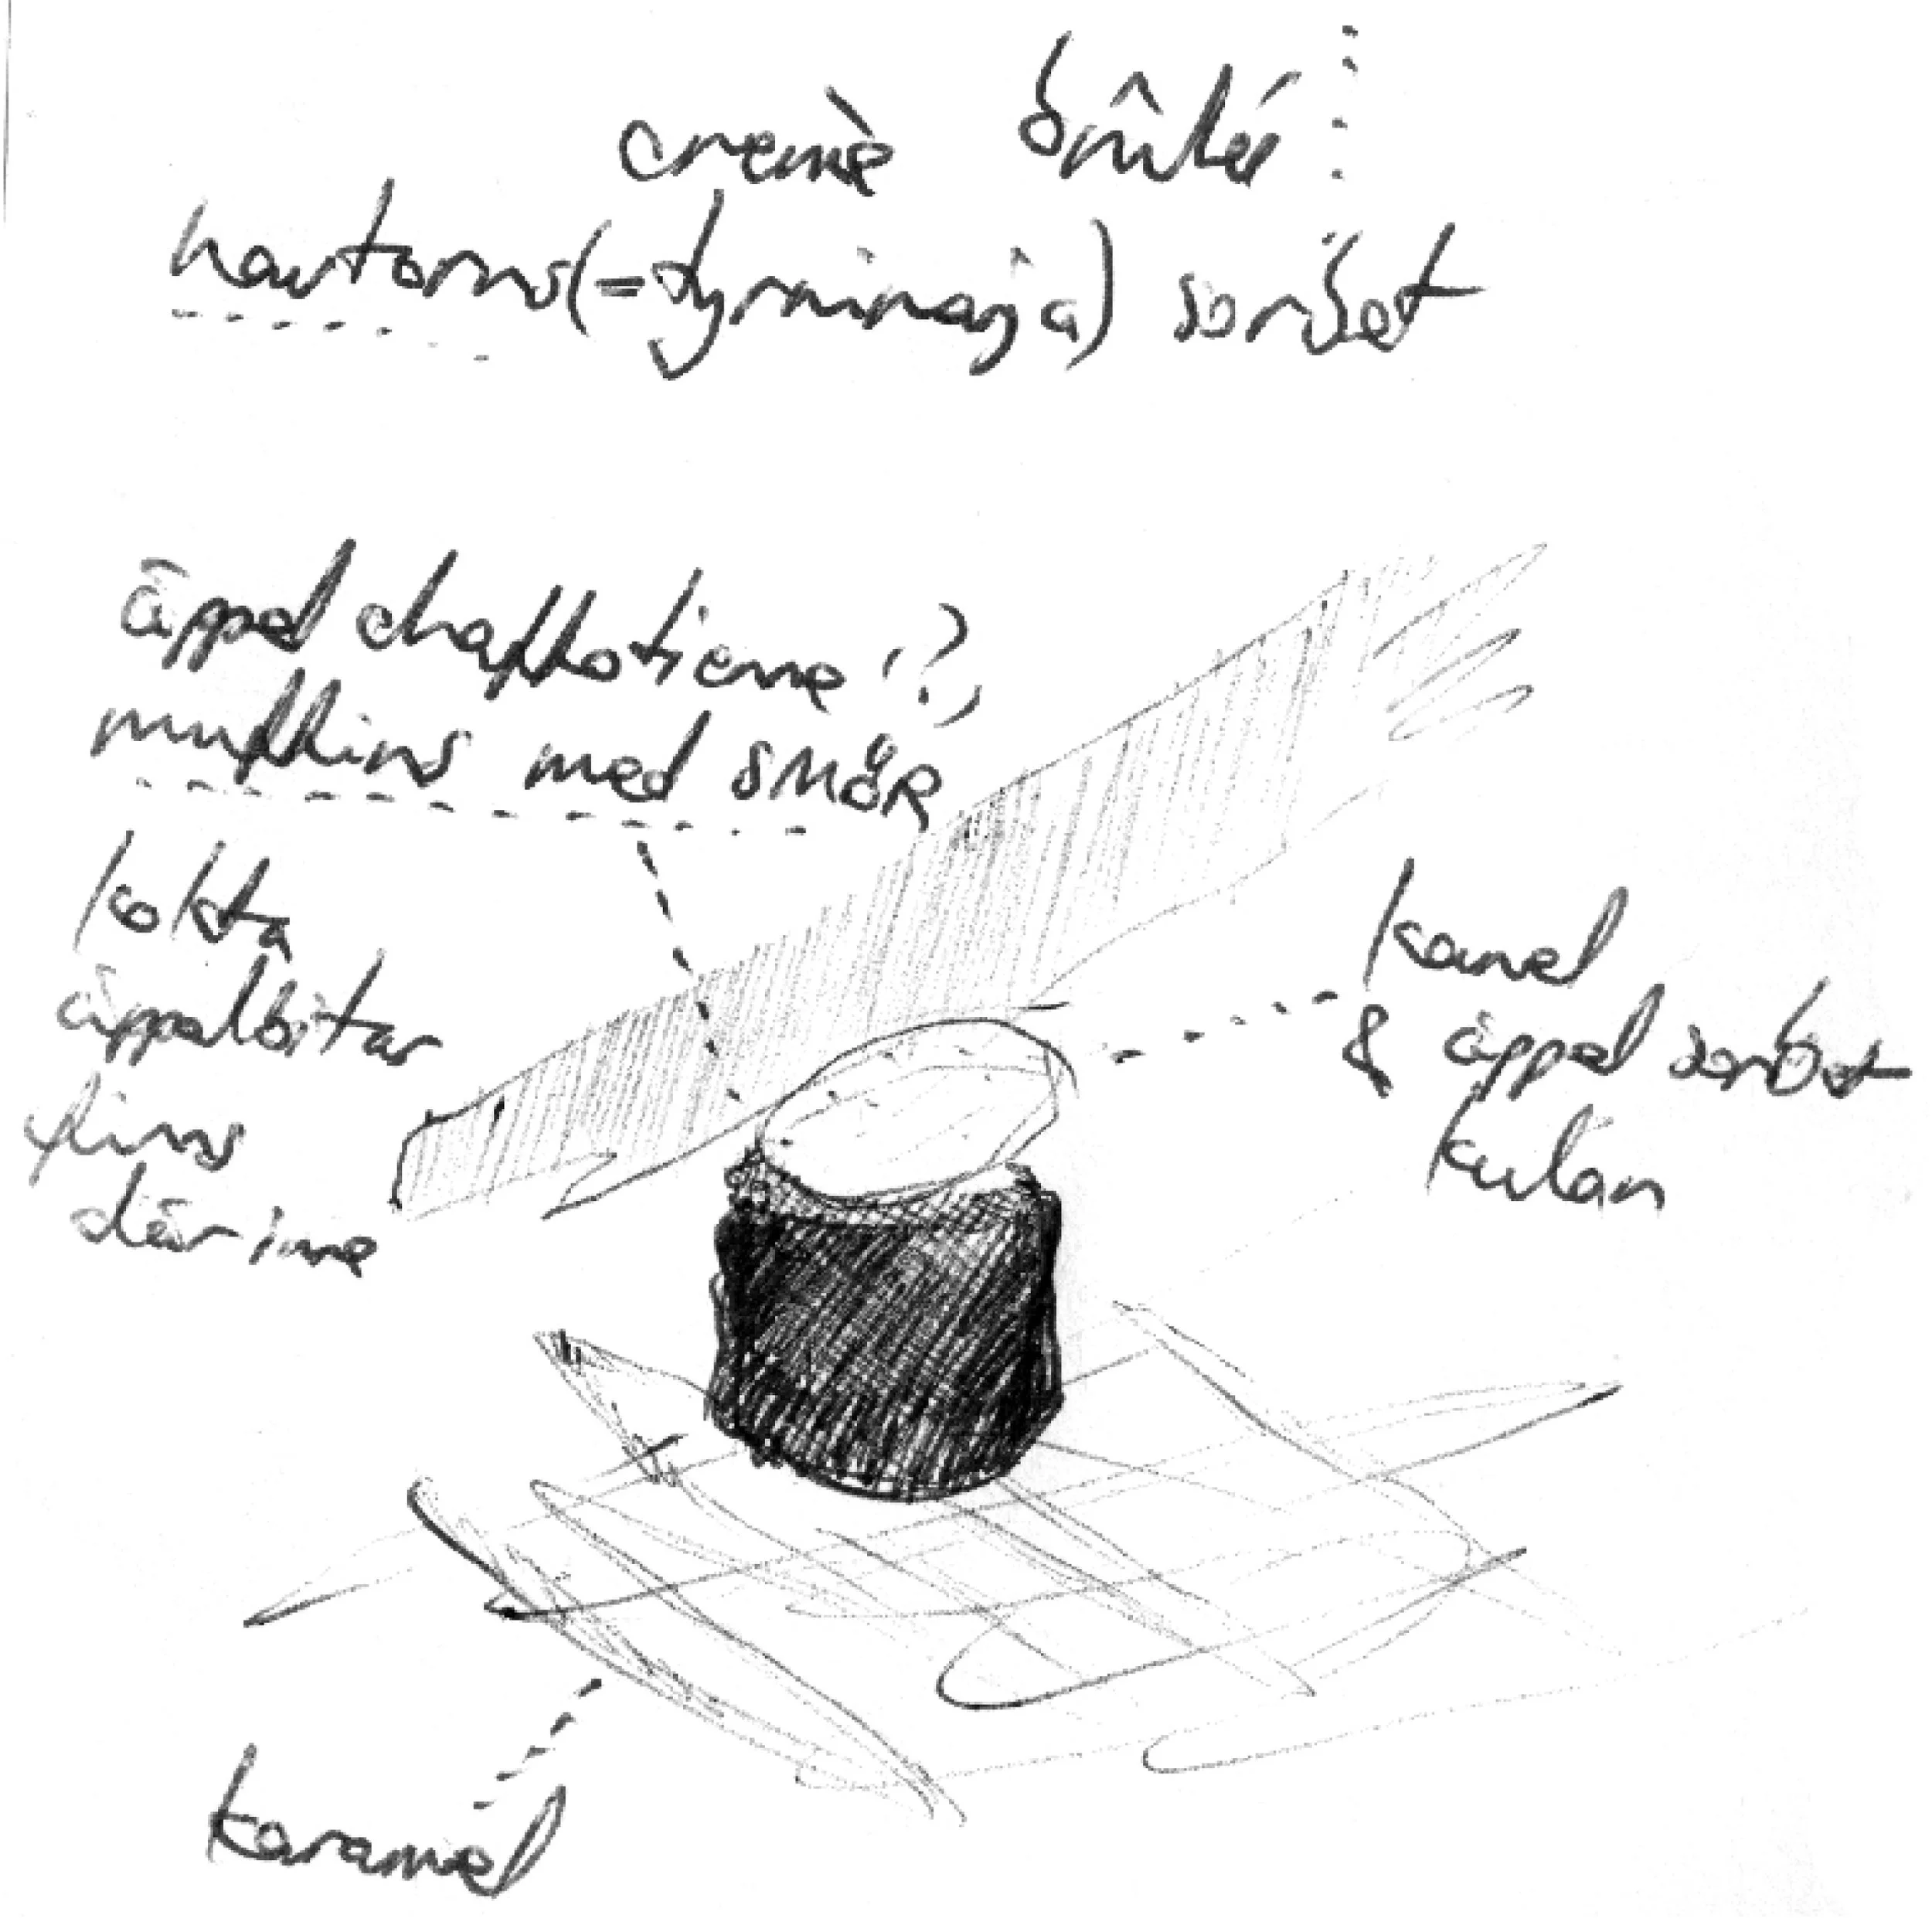 cremè brûlée
havtorns(=tyrninaja) sorbet
äppel chaffotieme (?)
muffins med SMÖR
kokta
äppelbitar
fins
där inne
kanel
& äppel sorbet
kulan
karamel